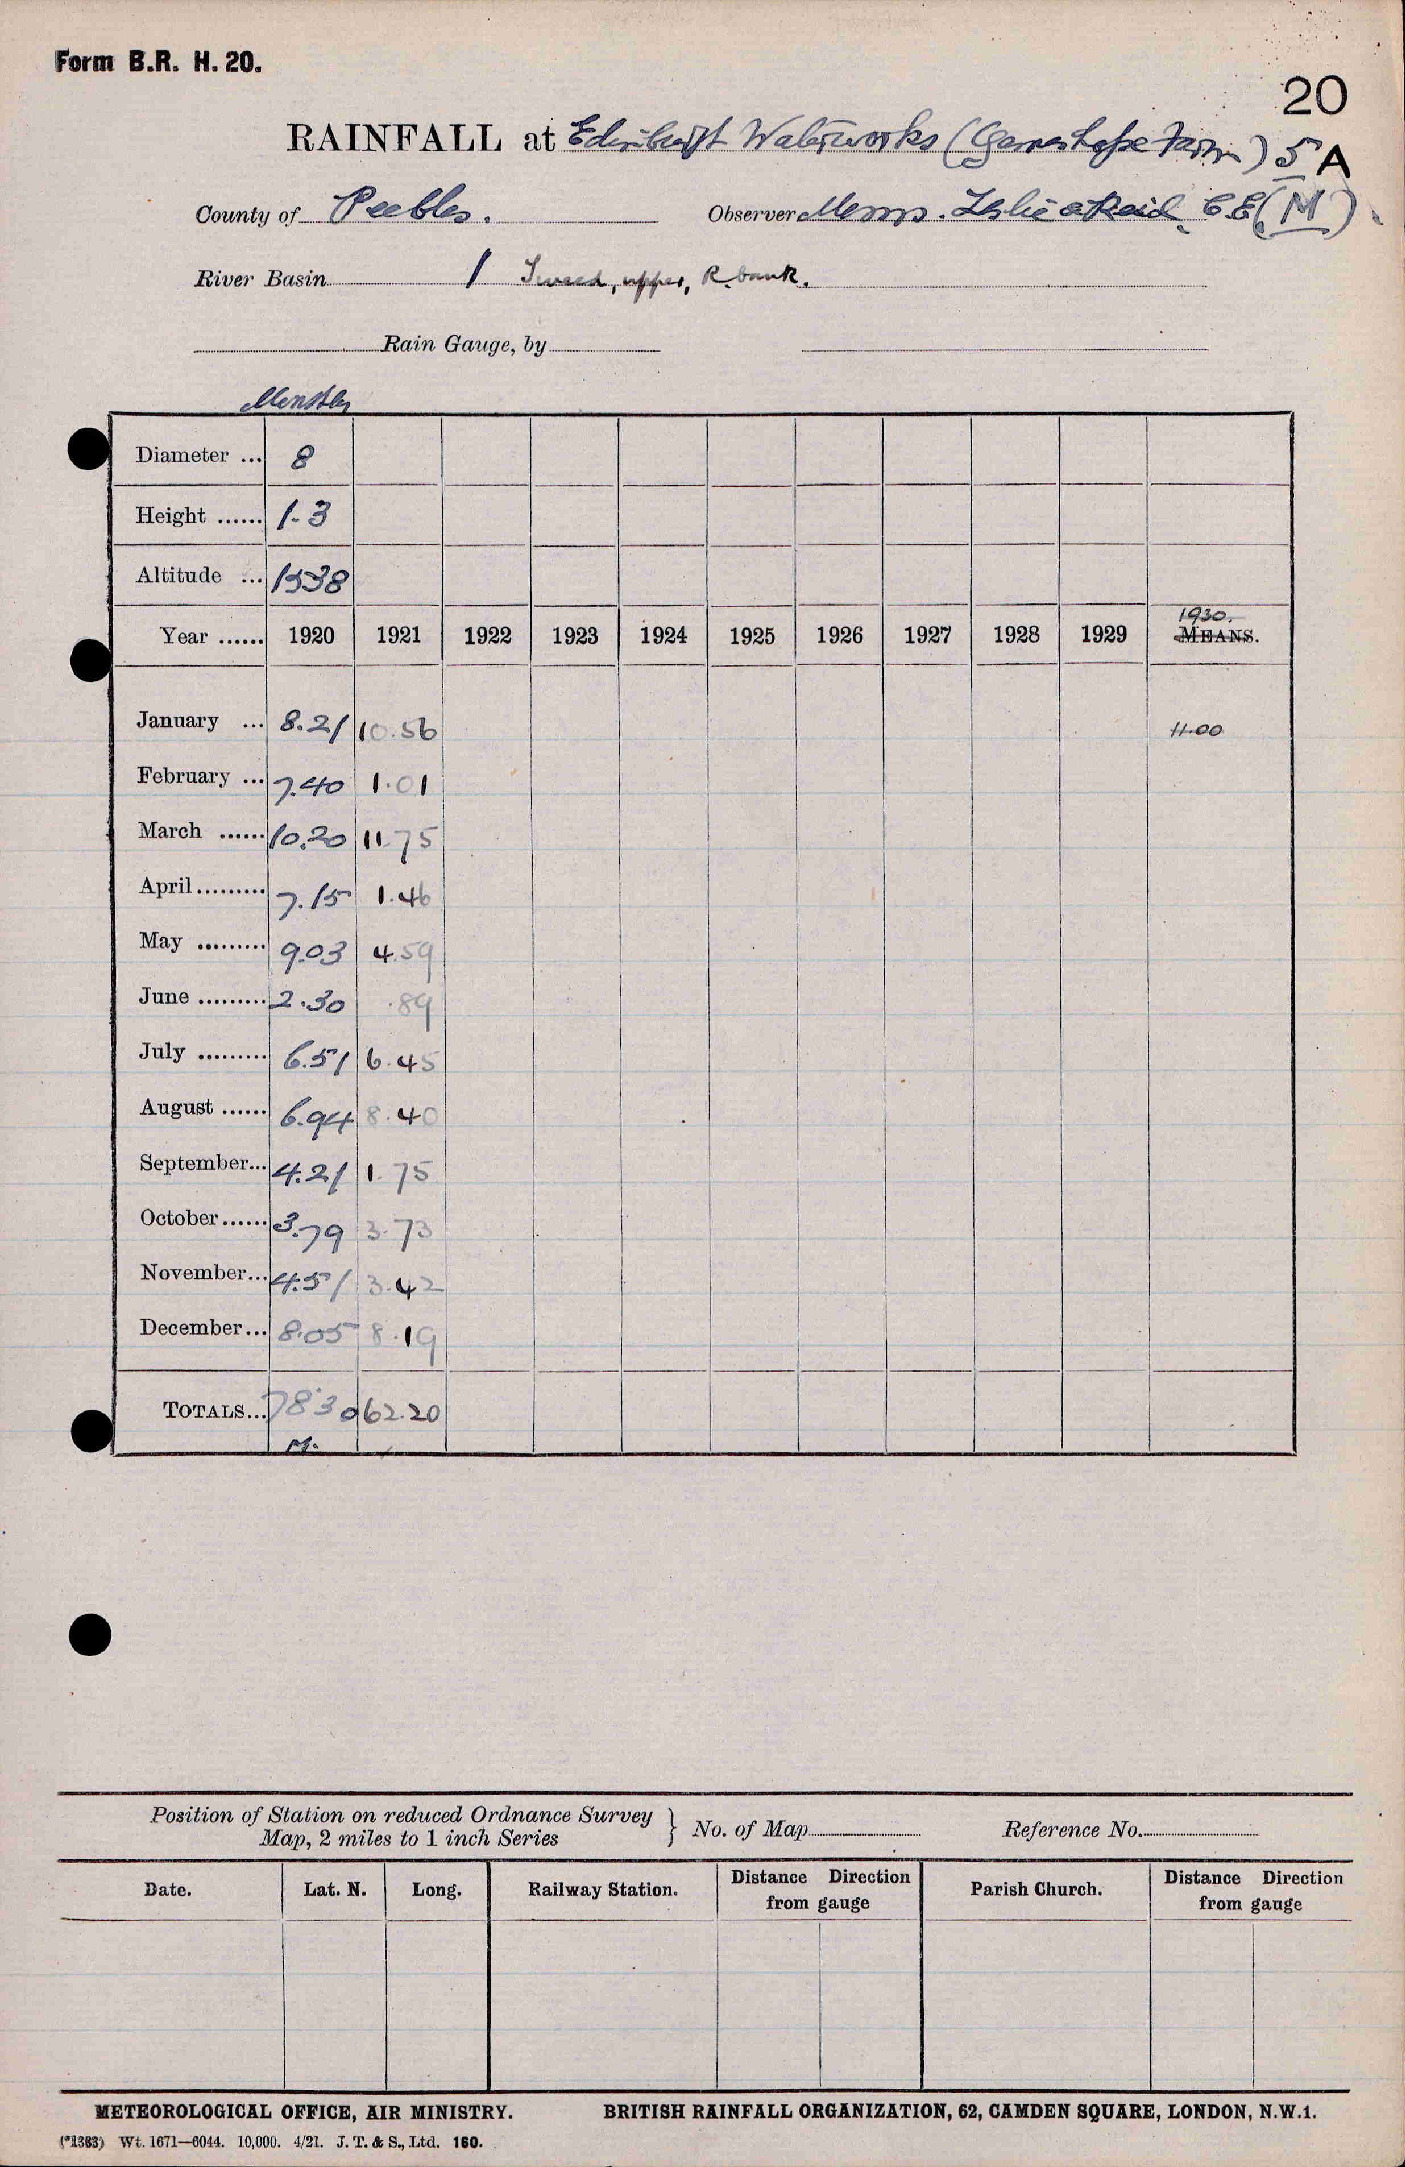 Form B.R. H. 20.
20
RAINFALL at Edinburgh Waterworks (Gameshope Farm) 5 A
County of Peebles. Observer Messrs. Leslie & Reid, C.E. (M)
River Basin 1 Tweed, upper, R. bank.
Rain Gauge, by
Monthly
Diameter ... 8
Height ...... 1-3
Altitude ... 1538
1930.
Year ...... 1920 1921 1922 1923 1924 1925 1926 1927 1928 1929 MEANS.
January ... 8.21 10.56 11.00
February ... 7.40 1.01
March ...... 10.20 11.75
April......... 7.15 1.46
May ......... 9.03 4.59
June ......... 2.30 .89
July ......... 6.51 6.45
August ...... 6.94 8.40
September... 4.21 1.75
October...... 3.79 3.73
November... 4.51 3.42
December... 8.05 8.19
TOTALS... 78.30 62.20
M.
Position of Station on reduced Ordnance Survey
Map, 2 miles to 1 inch Series } No. of Map Reference No.
Date. Lat. N. Long. Railway Station. Distance Direction from gauge Parish Church. Distance Direction from gauge
METEOROLOGICAL OFFICE, AIR MINISTRY. BRITISH RAINFALL ORGANIZATION, 62, CAMDEN SQUARE, LONDON, N.W.1.
(*1383) Wt. 1671—6044. 10,000. 4/21. J. T. & S., Ltd. 160.